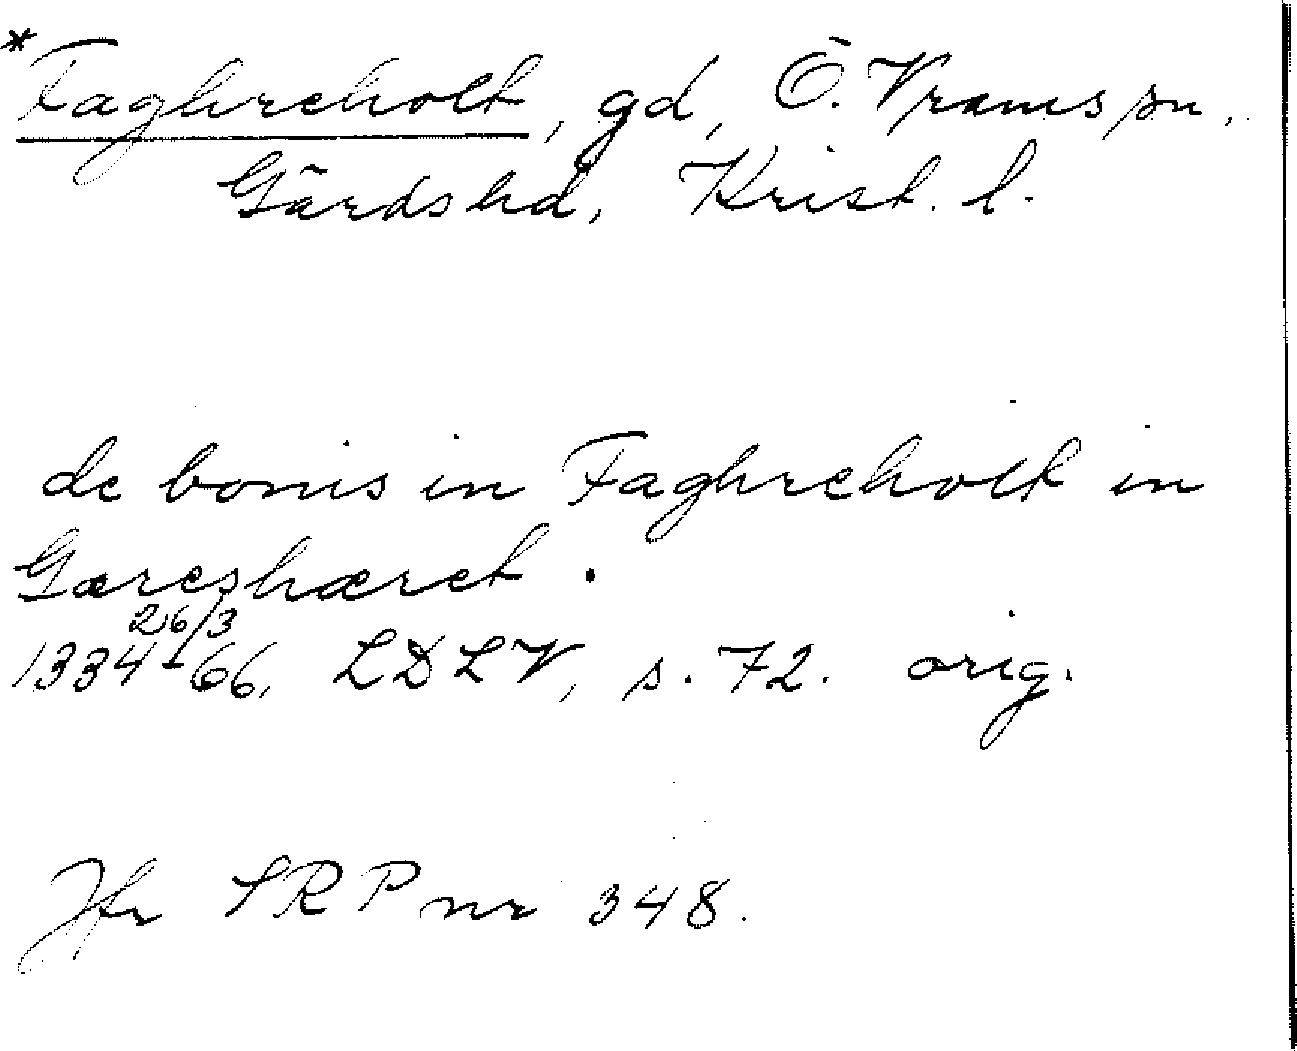 *Faghreholt, gd, Ö. Vrams sn,
Gärds hd, Krist. l.
de bonis in Faghreholt in
Gæreshæret.
1334 26/3 - 66, LDLV, s. 72. orig.
Jfr SRP nr 348.